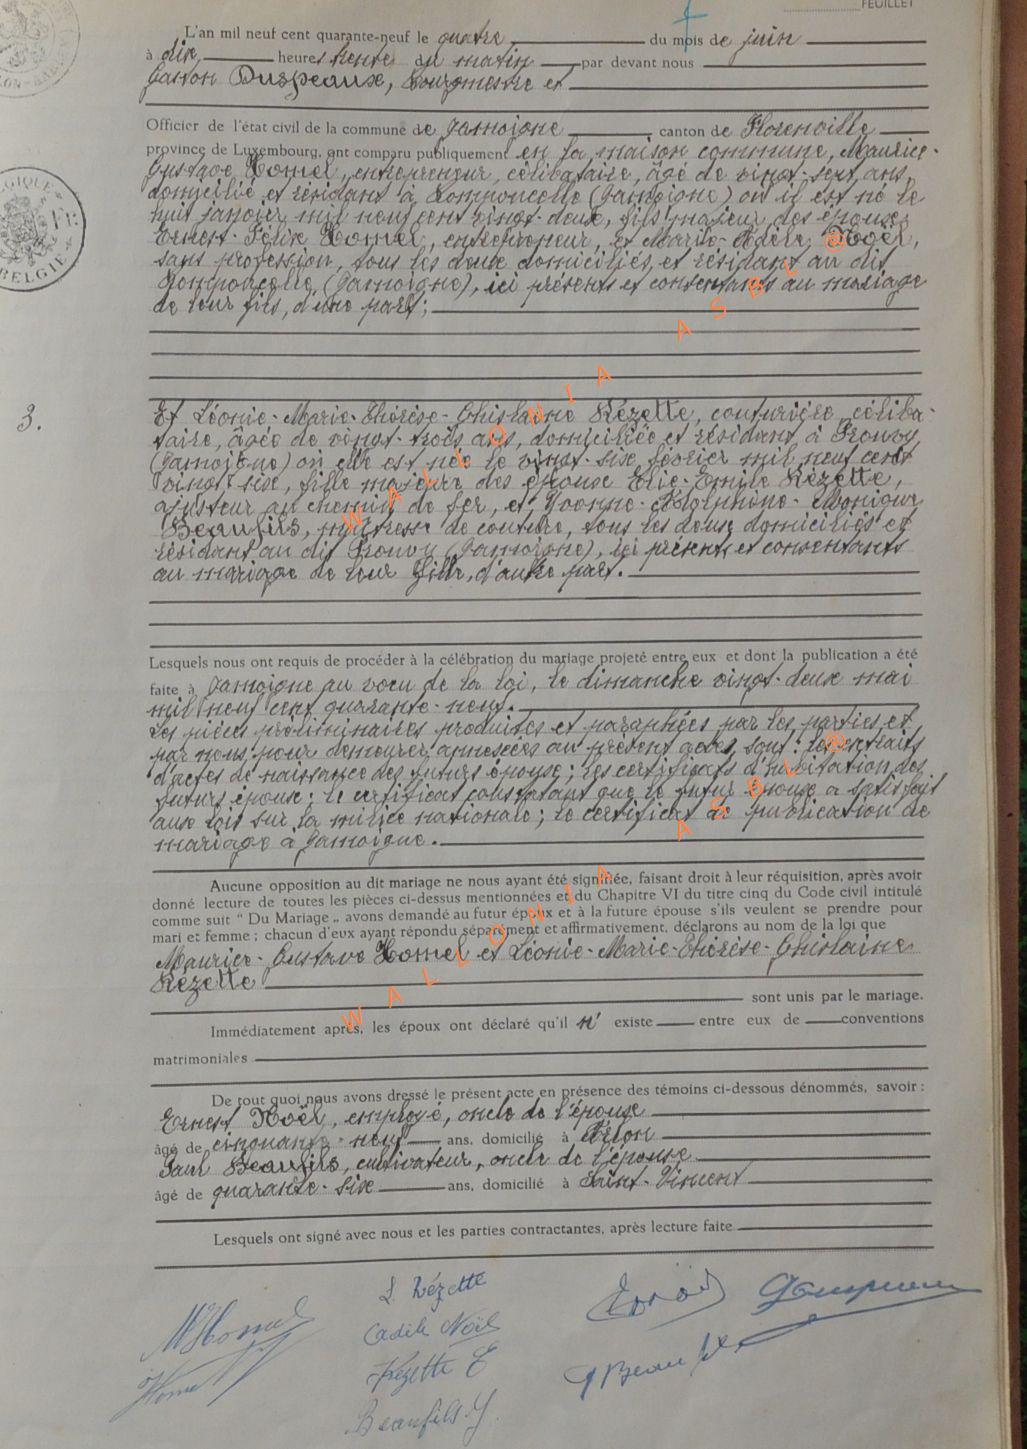 FEUILLET
L'an mil neuf cent quarante-neuf le quatre du mois de juin
à dix heures trente du matin par devant nous
Gaston Duspeaux, bourgmestre et
Officier de l'état civil de la commune de Jamoigne canton de Florenville
province de Luxembourg, ont comparu publiquement en la maison commune, Maurice-
Gustave Homel, entrepreneur, célibataire, âgé de vingt-sept ans,
domicilié et résidant à Romponcelle (Jamoigne) où il est né le
huit janvier mil neuf cent vingt-deux, fils majeur des époux
Ernest-Félix Homel, entrepreneur, et Marie-Adèle Noël,
sans profession, tous les deux domiciliés et résidant au dit
Romponcelle (Jamoigne), ici présents et consentants au mariage
de leur fils, d'une part;
3.
Et Léonie-Marie-Thérèse-Ghislaine Rézette, couturière, céliba-
taire, âgée de vingt-trois ans, domiciliée et résidant à Prouvy
(Jamoigne) où elle est née le vingt-six février mil neuf cent
vingt-six, fille majeure des époux Eric-Emile Rézette,
ajusteur au chemin de fer, et Yvonne-Monique
Beaufils, maîtresse de couture, tous les deux domiciliés et
résidant au dit Prouvy (Jamoigne), ici présents et consentants
au mariage de leur fille, d'autre part.
Lesquels nous ont requis de procéder à la célébration du mariage projeté entre eux et dont la publication a été
faite à Jamoigne au vœu de la loi, le dimanche vingt-deux mai
mil neuf cent quarante-neuf.
Les pièces préliminaires produites et paraphées par les parties et
par nous pour demeurer annexées au présent acte, sont: les extraits
d'actes de naissance des futurs époux; les certificats d'habitation des
futurs époux; le certificat constatant que le futur époux a satisfait
aux lois sur la milice nationale; le certificat de publication de
mariage à Jamoigne.
Aucune opposition au dit mariage ne nous ayant été signifiée, faisant droit à leur réquisition, après avoir
donné lecture de toutes les pièces ci-dessus mentionnées et du Chapitre VI du titre cinq du Code civil intitulé
comme suit " Du Mariage „ avons demandé au futur époux et à la future épouse s'ils veulent se prendre pour
mari et femme ; chacun d'eux ayant répondu séparément et affirmativement, déclarons au nom de la loi que
Maurice-Gustave Homel et Léonie-Marie-Thérèse-Ghislaine
Rézette
sont unis par le mariage.
Immédiatement après, les époux ont déclaré qu'il n' existe entre eux de conventions
matrimoniales
De tout quoi nous avons dressé le présent acte en présence des témoins ci-dessous dénommés, savoir :
Ernest Noël, employé, oncle de l'épouse
âgé de cinquante-neuf ans, domicilié à Arlon
Paul Beaufils, cultivateur, oncle de l'épouse
âgé de quarante-six ans, domicilié à Saint-Vincent
Lesquels ont signé avec nous et les parties contractantes, après lecture faite
L Rézette
M Homel
Adèle Noël
Homel
Rézette E
Beaufils Y
E Noël
P Beaufils
WALLONIA ASBL @
WALLONIA ASBL @